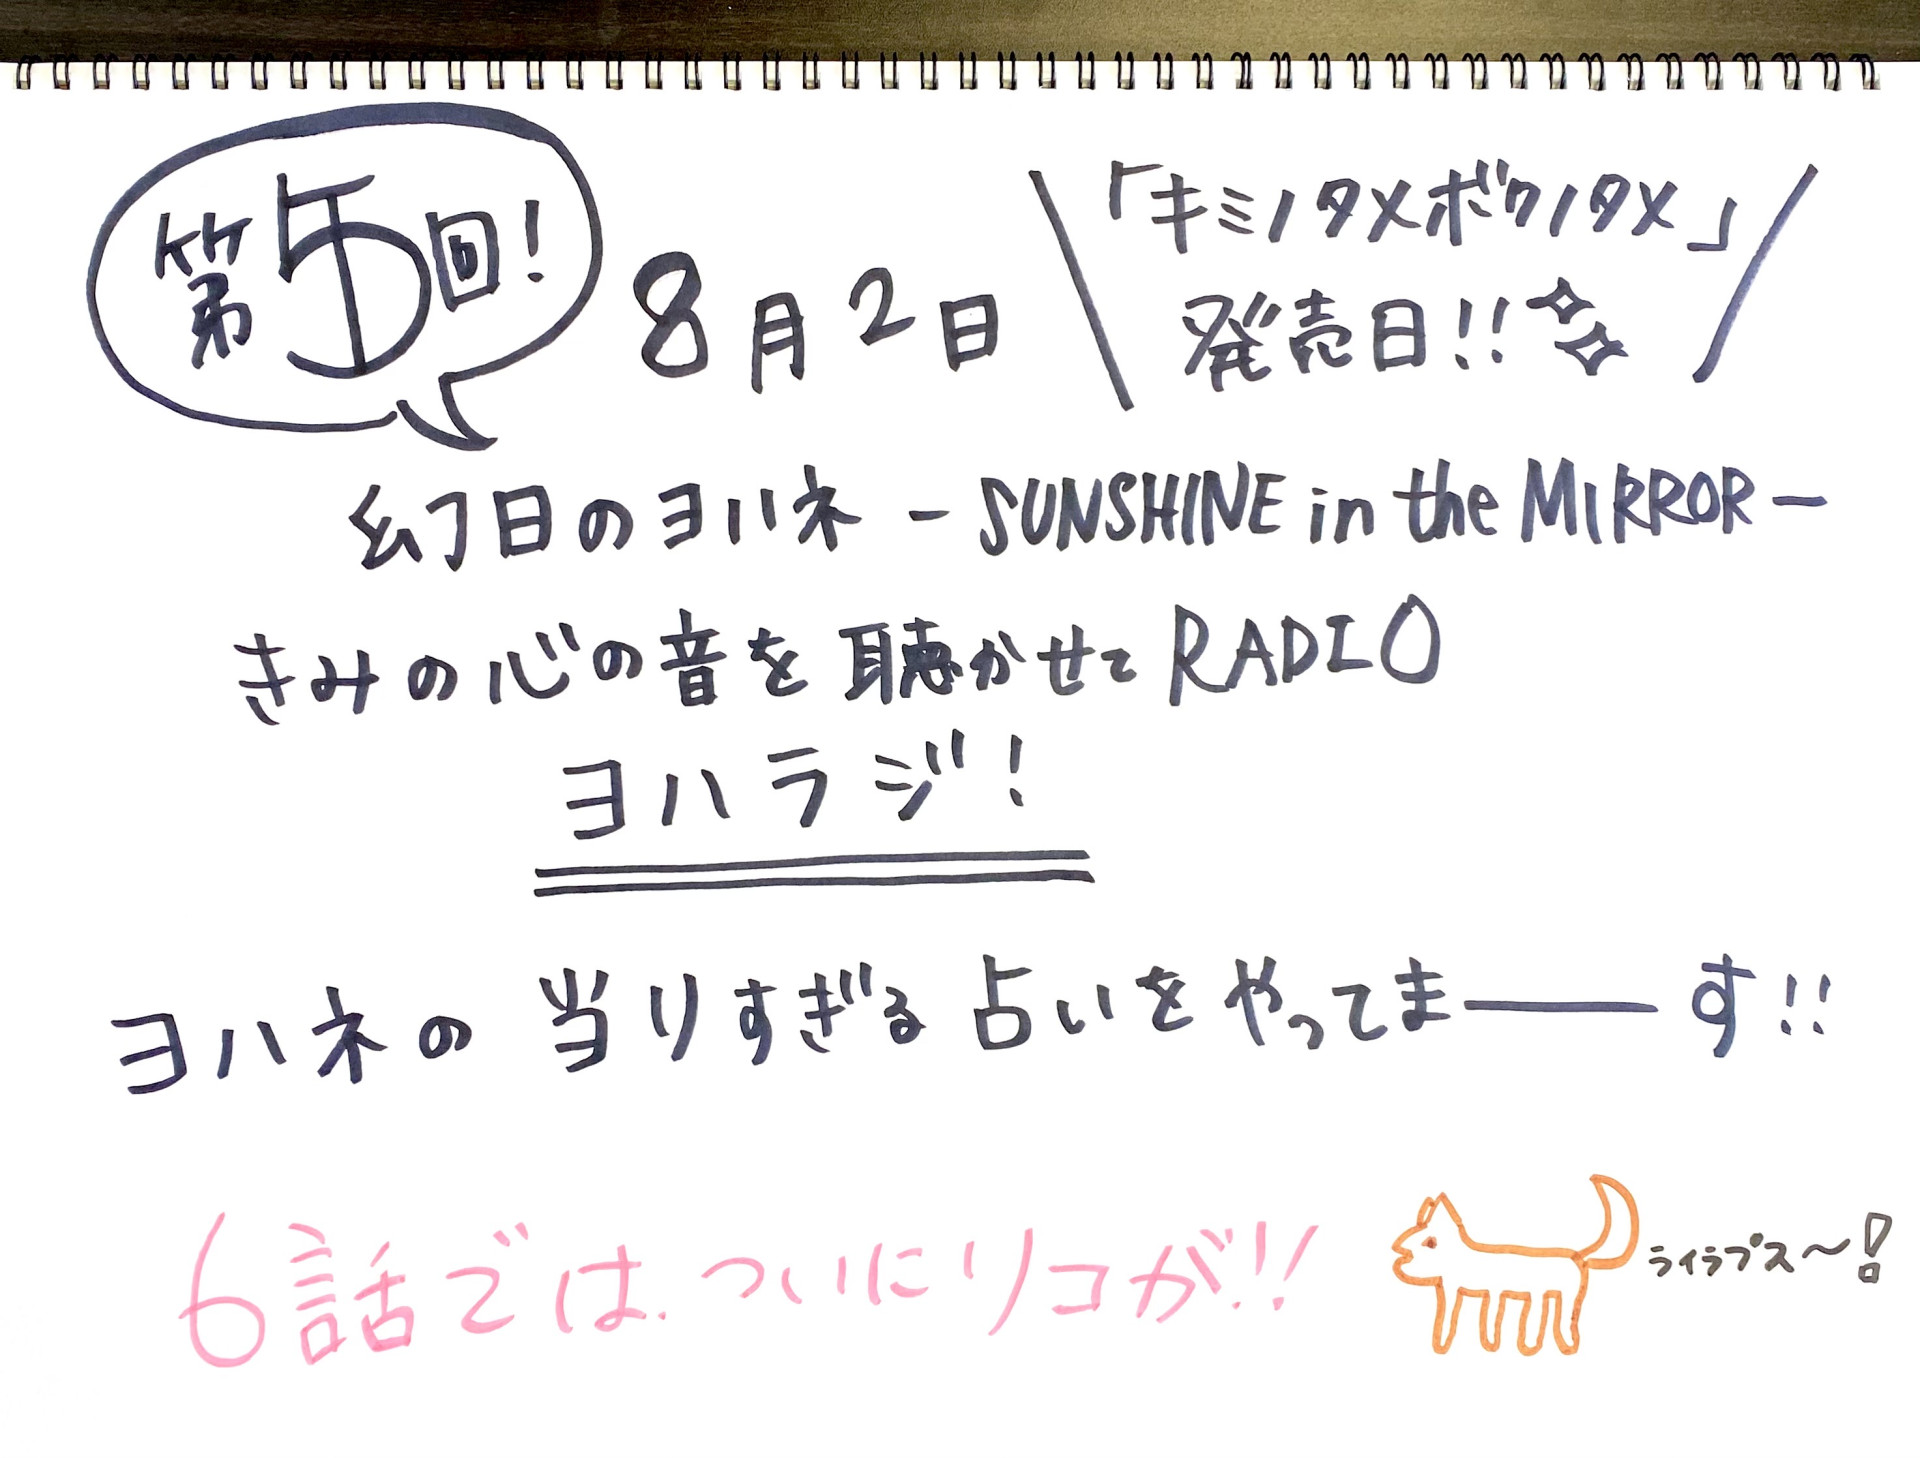 第5回!
8月2日
「キミノタメボクノタメ」
発売日!!
幻日のヨハネ - SUNSHINE in the MIRROR -
きみの心の音を聴かせて RADIO
ヨハラジ!
ヨハネの当りすぎる占いをやってまーーす!!
6話では、ついにリコが!!
ライラプス〜!